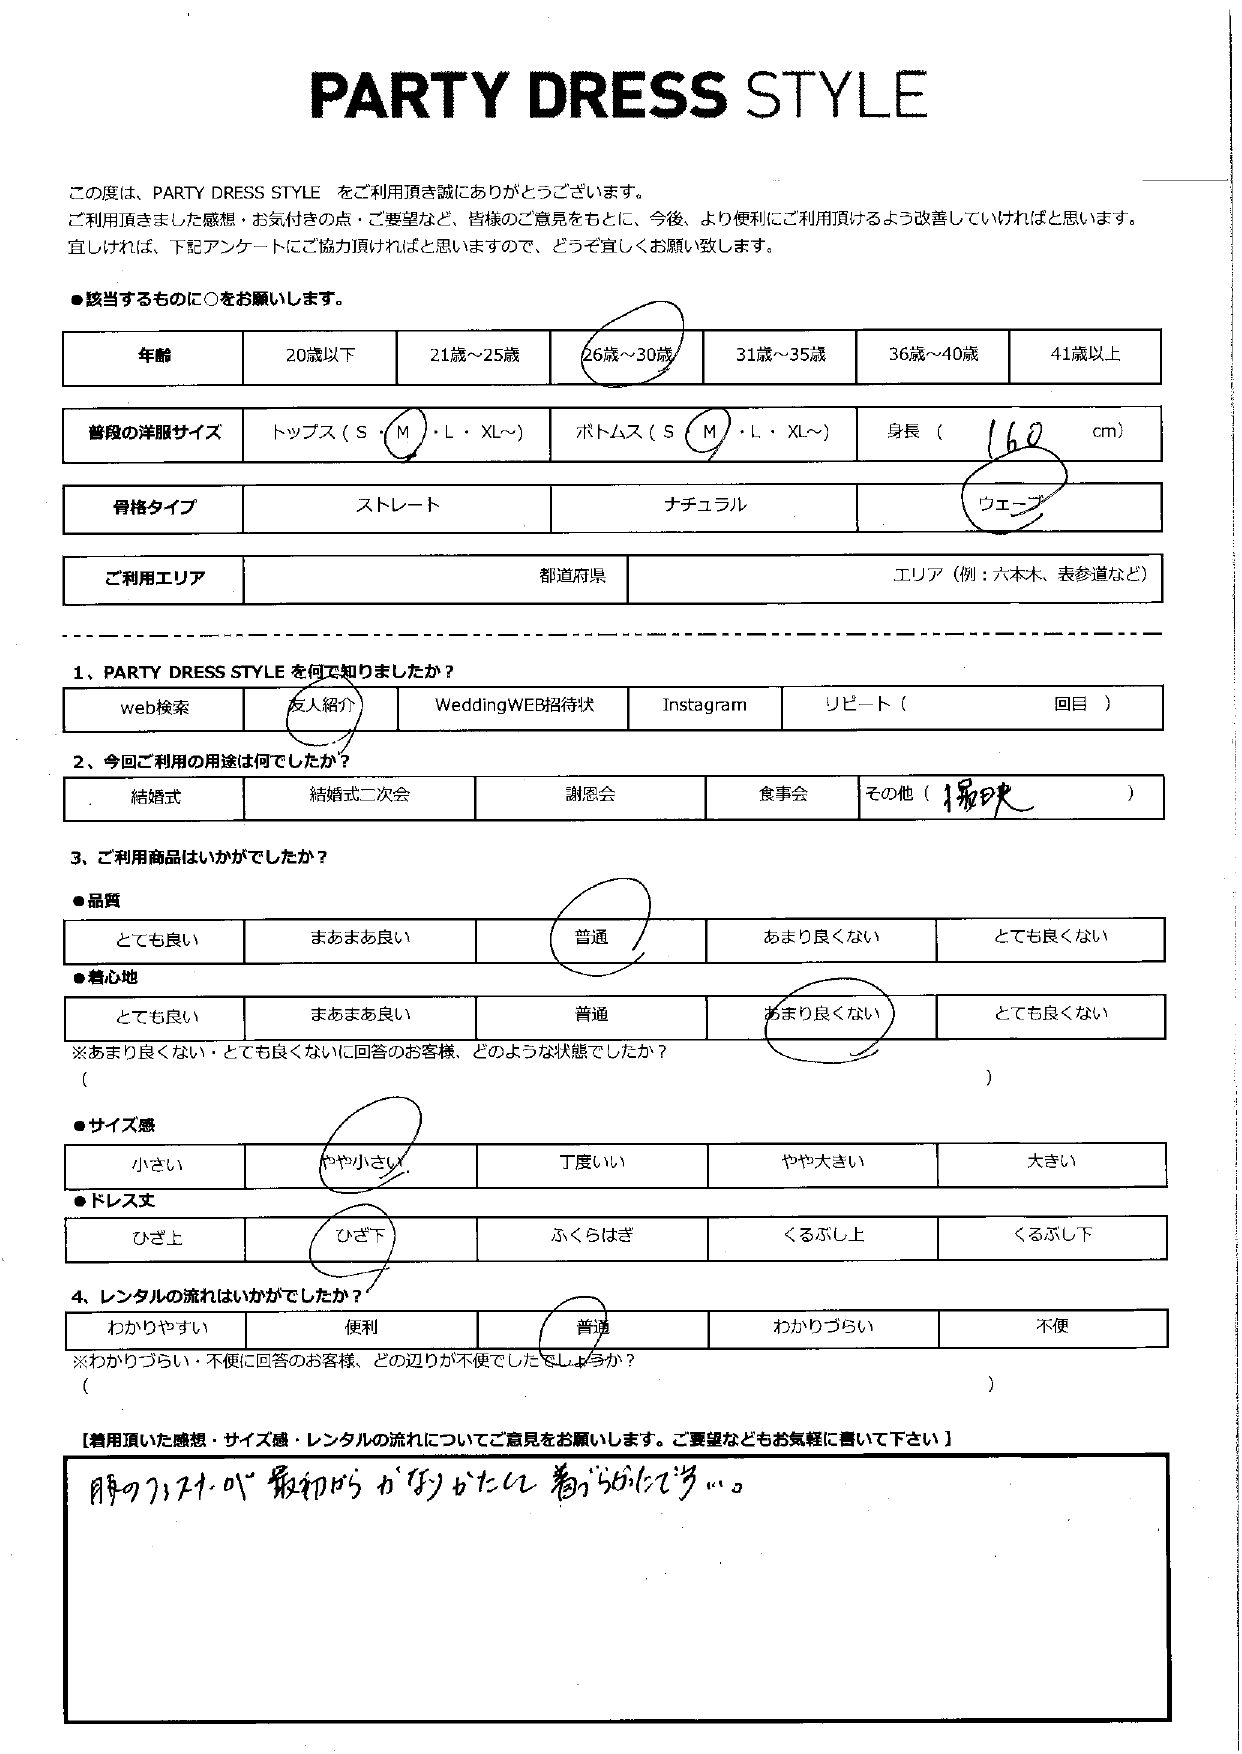 PARTY DRESS STYLE
この度は、PARTY DRESS STYLE をご利用頂き誠にありがとうございます。
ご利用頂きました感想・お気付きの点・ご要望など、皆様のご意見をもとに、今後、より便利にご利用頂けるよう改善していければと思います。
宜しければ、下記アンケートにご協力頂ければと思いますので、どうぞ宜しくお願い致します。
●該当するものに○をお願いします。
年齢 20歳以下 21歳～25歳 26歳～30歳 31歳～35歳 36歳～40歳 41歳以上
普段の洋服サイズ トップス ( S ・ M ・ L ・ XL～) ボトムス ( S ・ M ・ L ・ XL～) 身長 ( 160 cm)
骨格タイプ ストレート ナチュラル ウェーブ
ご利用エリア 都道府県 エリア（例：六本木、表参道など）
1、PARTY DRESS STYLE を何で知りましたか？
web検索 友人紹介 WeddingWEB招待状 Instagram リピート ( 回目 )
2、今回ご利用の用途は何でしたか？
結婚式 結婚式二次会 謝恩会 食事会 その他 ( 撮映 )
3、ご利用商品はいかがでしたか？
●品質
とても良い まあまあ良い 普通 あまり良くない とても良くない
●着心地
とても良い まあまあ良い 普通 あまり良くない とても良くない
※あまり良くない・とても良くないに回答のお客様、どのような状態でしたか？
( )
●サイズ感
小さい やや小さい 丁度いい やや大きい 大きい
●ドレス丈
ひざ上 ひざ下 ふくらはぎ くるぶし上 くるぶし下
4、レンタルの流れはいかがでしたか？
わかりやすい 便利 普通 わかりづらい 不便
※わかりづらい・不便に回答のお客様、どの辺りが不便でしたでしょうか？
( )
【着用頂いた感想・サイズ感・レンタルの流れについてご意見をお願いします。ご要望などもお気軽に書いて下さい】
のファスナーが 最初から かなり かたくて 着づらかったです…。